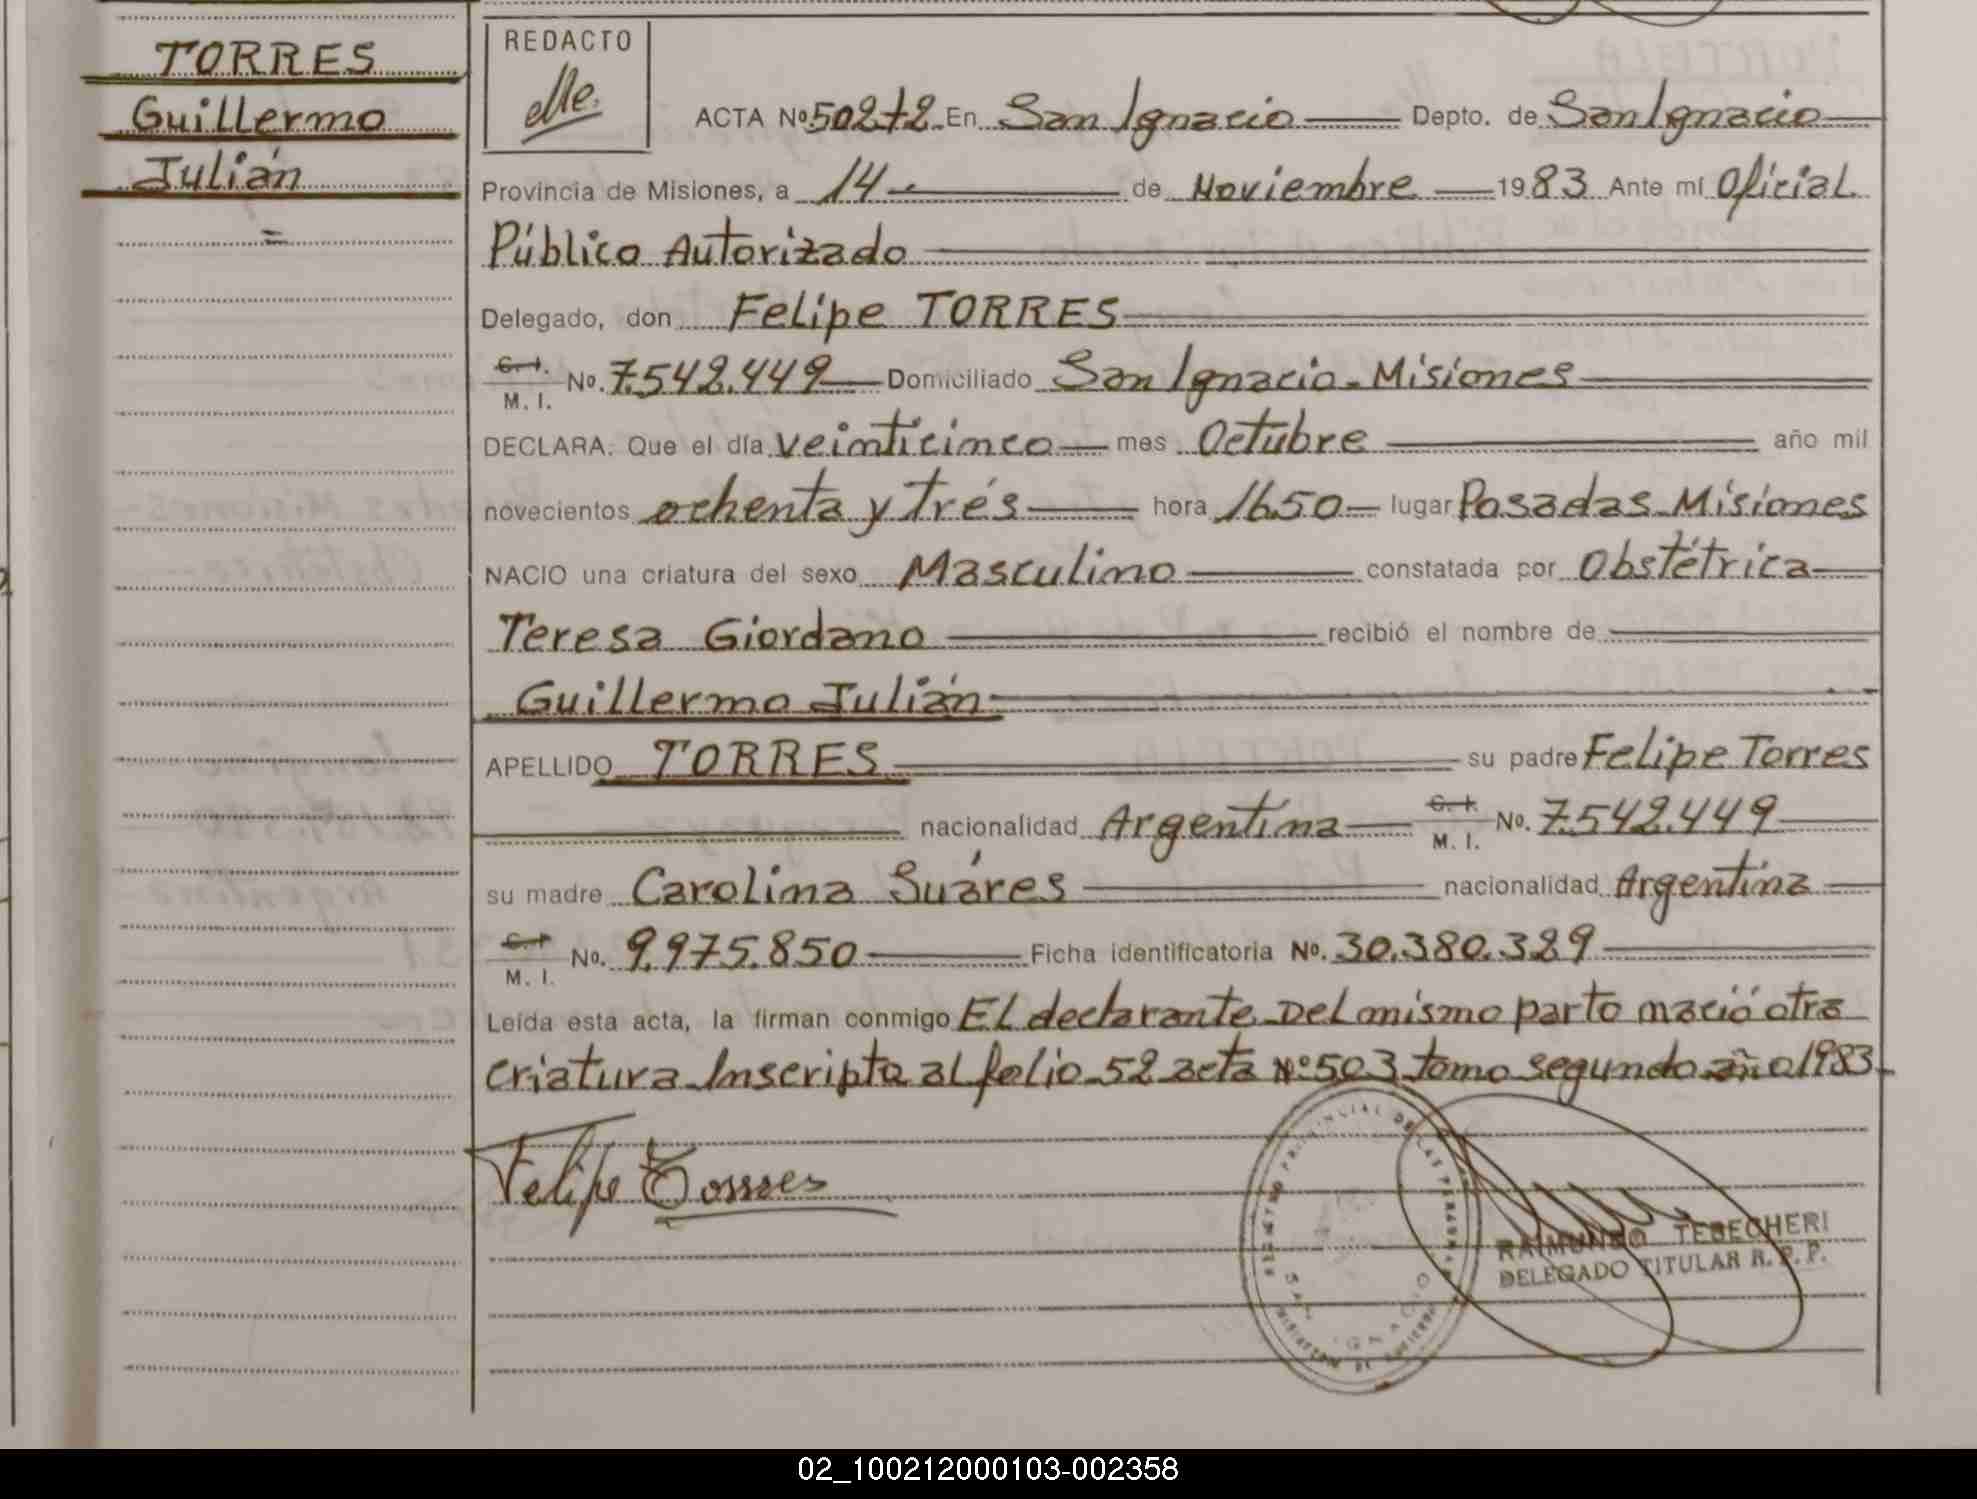 TORRES
Guillermo
Julián
=
REDACTO
ACTA Nº 502 t2 En San Ignacio Depto. de San Ignacio
Provincia de Misiones, a 14 de Noviembre 1983 Ante mí Oficial
Público Autorizado
Delegado, don Felipe TORRES
C. I.
M. I. No. 7.542.449 Domiciliado San Ignacio - Misiones
DECLARA: Que el día veinticinco mes Octubre año mil
novecientos ochenta y trés hora 16.50 lugar Posadas Misiones
NACIO una criatura del sexo Masculino constatada por Obstétrica
Teresa Giordano recibió el nombre de
Guillermo Julián
APELLIDO TORRES su padre Felipe Torres
nacionalidad Argentina C. I. M. I. No. 7.542.449
su madre Carolina Suáres nacionalidad Argentina
C. I.
M. I. No. 9.975.850 Ficha identificatoria No. 30.380.389
Leída esta acta, la firman conmigo El declarante Del mismo parto nació otra
criatura Inscripta al folio 52 acta Nº 503 tomo segundo año 1983
Felipe Torres
REGISTRO PROVINCIAL DE LAS PERSONAS
SAN IGNACIO
MINISTERIO DE GOBIERNO
RAIMUNDO TEBECHERI
DELEGADO TITULAR R. P. P.
02_100212000103-002358